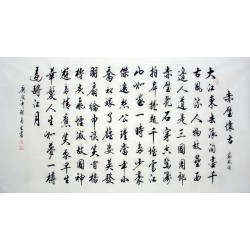 赤壁懷古
大江東去浪淘盡千
古風流人物故壘西
邊人道是三國周郎
赤壁亂石穿空驚濤
拍岸捲起千堆雪江
山如畫一時多少豪
傑遙想公瑾當年小
喬初嫁了雄姿英發
羽扇綸巾談笑間檣
櫓灰飛煙滅故國神
遊多情應笑我早生
華髮人生如夢一樽
還酹江月